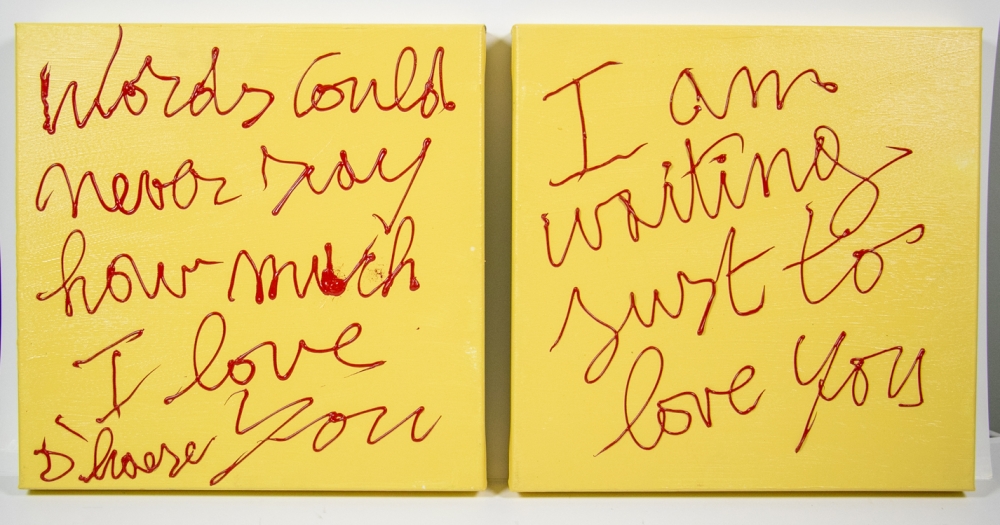 Words Could
never say
how much
I love
You
D'haese
I am
waiting
just to
love You